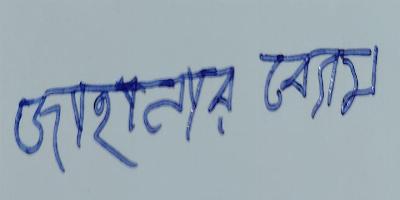 জাহানার বেগম